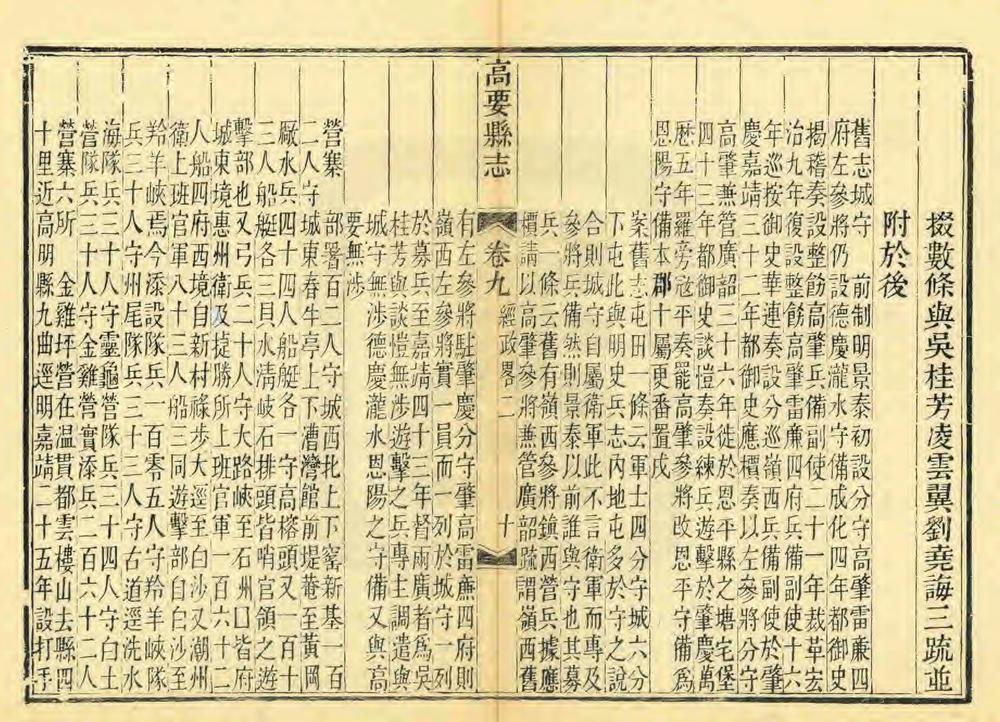 掇數條與吳桂芳凌雲翼劉堯誨三疏並
附於後
舊志城守　前制明景泰初設分守高肇雷廉四
府左參將仍設德慶瀧水守備成化四年都御史
揭稽奏設整飭高肇兵備副使二十一年裁革宏
治九年復設整飭高肇雷廉四府兵備副使十六
年巡按御史華連奏設分巡嶺西兵備副使於肇
慶嘉靖三十二年都御史應檟奏以左參將分守
高肇兼管廣韶三十六年徙於恩平縣之塘宅堡
四十三年都御史談愷奏設練兵遊擊於肇慶萬
厯五年羅旁宼平奏罷高肇參將改恩平守備爲
恩陽守備本郡十屬更番置戍
案舊志屯田一條云軍士四分守城六分
下屯此與明史兵志內地屯多於守之說
合則城守自屬衛軍此不言衛軍而專及
參將兵備然則景泰以前誰與守也其募
兵一條云舊有嶺西參將鎮西營兵據應
檟請以高肇參將兼管廣韶疏謂嶺西舊
高要縣志
卷九　經政畧二
十
有左參將駐肇慶分守肇高雷廉四府則
嶺西左參將實一員而一列於城守一列
於募兵至嘉靖四十三年督兩廣者爲吳
桂芳與談愷無涉遊擊之兵專主調遣與
城守無涉德慶瀧水恩陽之守備又與高
要無涉
營寨　部署百二人守城西北上下窰新基一百
二人守城東春牛亭上下漕灣館前堤菴至黃岡
厰水兵四十四人船艇各一守高榕頭又一百十
三人船艇各三貝水淸岐石排頭皆哨官領之遊
擊部也又弓兵二十人守大路峽至石州口皆府
城東境惠州衛及捷勝所上班官軍一百六十二
人船四府西境自新村祿步大逕至白沙又潮州
衛上班官軍八十三人船三同遊擊部自白沙至
羚羊峽焉今添設隊兵一百零五人守羚羊峽隊
兵三十人守州尾隊兵三十三人守右道逕洗水
海隊兵三十人守靈龜營隊兵三十四人守白土
營隊兵三十人守金雞營實添兵二百六十二人
營寨六所　金雞坪營在温貫都雲樓山去縣四
十里近高明縣九曲逕明嘉靖二十五年設打手